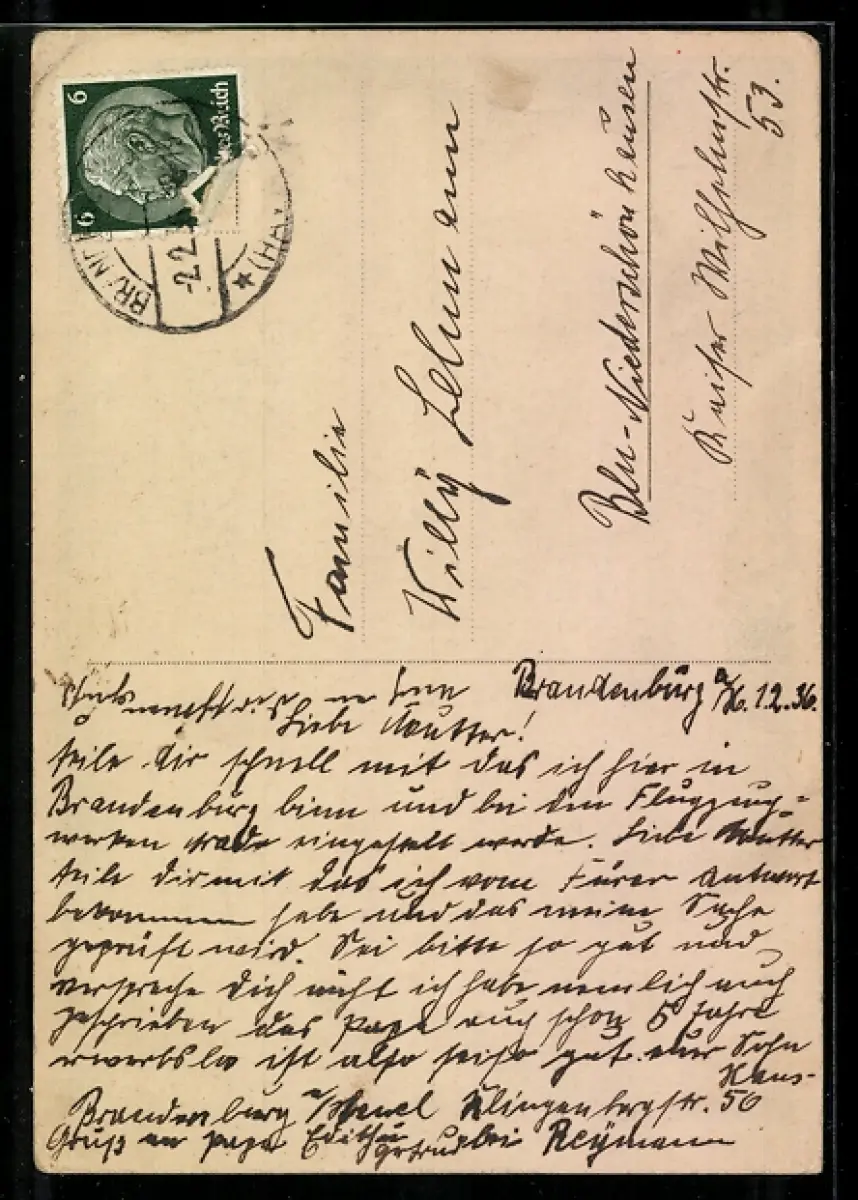 6
6
Reich
BRAND
-2.2
(HA
Familie
Willÿ Lehmann
Bln-Niederschönhausen
Kaiser Wilhelmstr.
53.
Brandenburg a/H. 1.2.36.
Liebe Mutter!
teile dir schnell mit das ich hier in
Brandenburg binn und bei den Flugzeug-
werken eingestelt werde. Liebe Mutter
teile dir mit das ich vom Fürer Antwort
bekommen habe und das meine Sache
geprüft wird. Sei bitte so gut und
verspreche dich nicht ich habe nemlich auch
geschrieben das Papa auch schon 5 Jahre
erwerbslos ist also sei so gut. euer Sohn
Hans-
Brandenburg a/Havel Klingenbergstr. 56
Gruß an Papa Edith u Gertrud bei Reÿmann